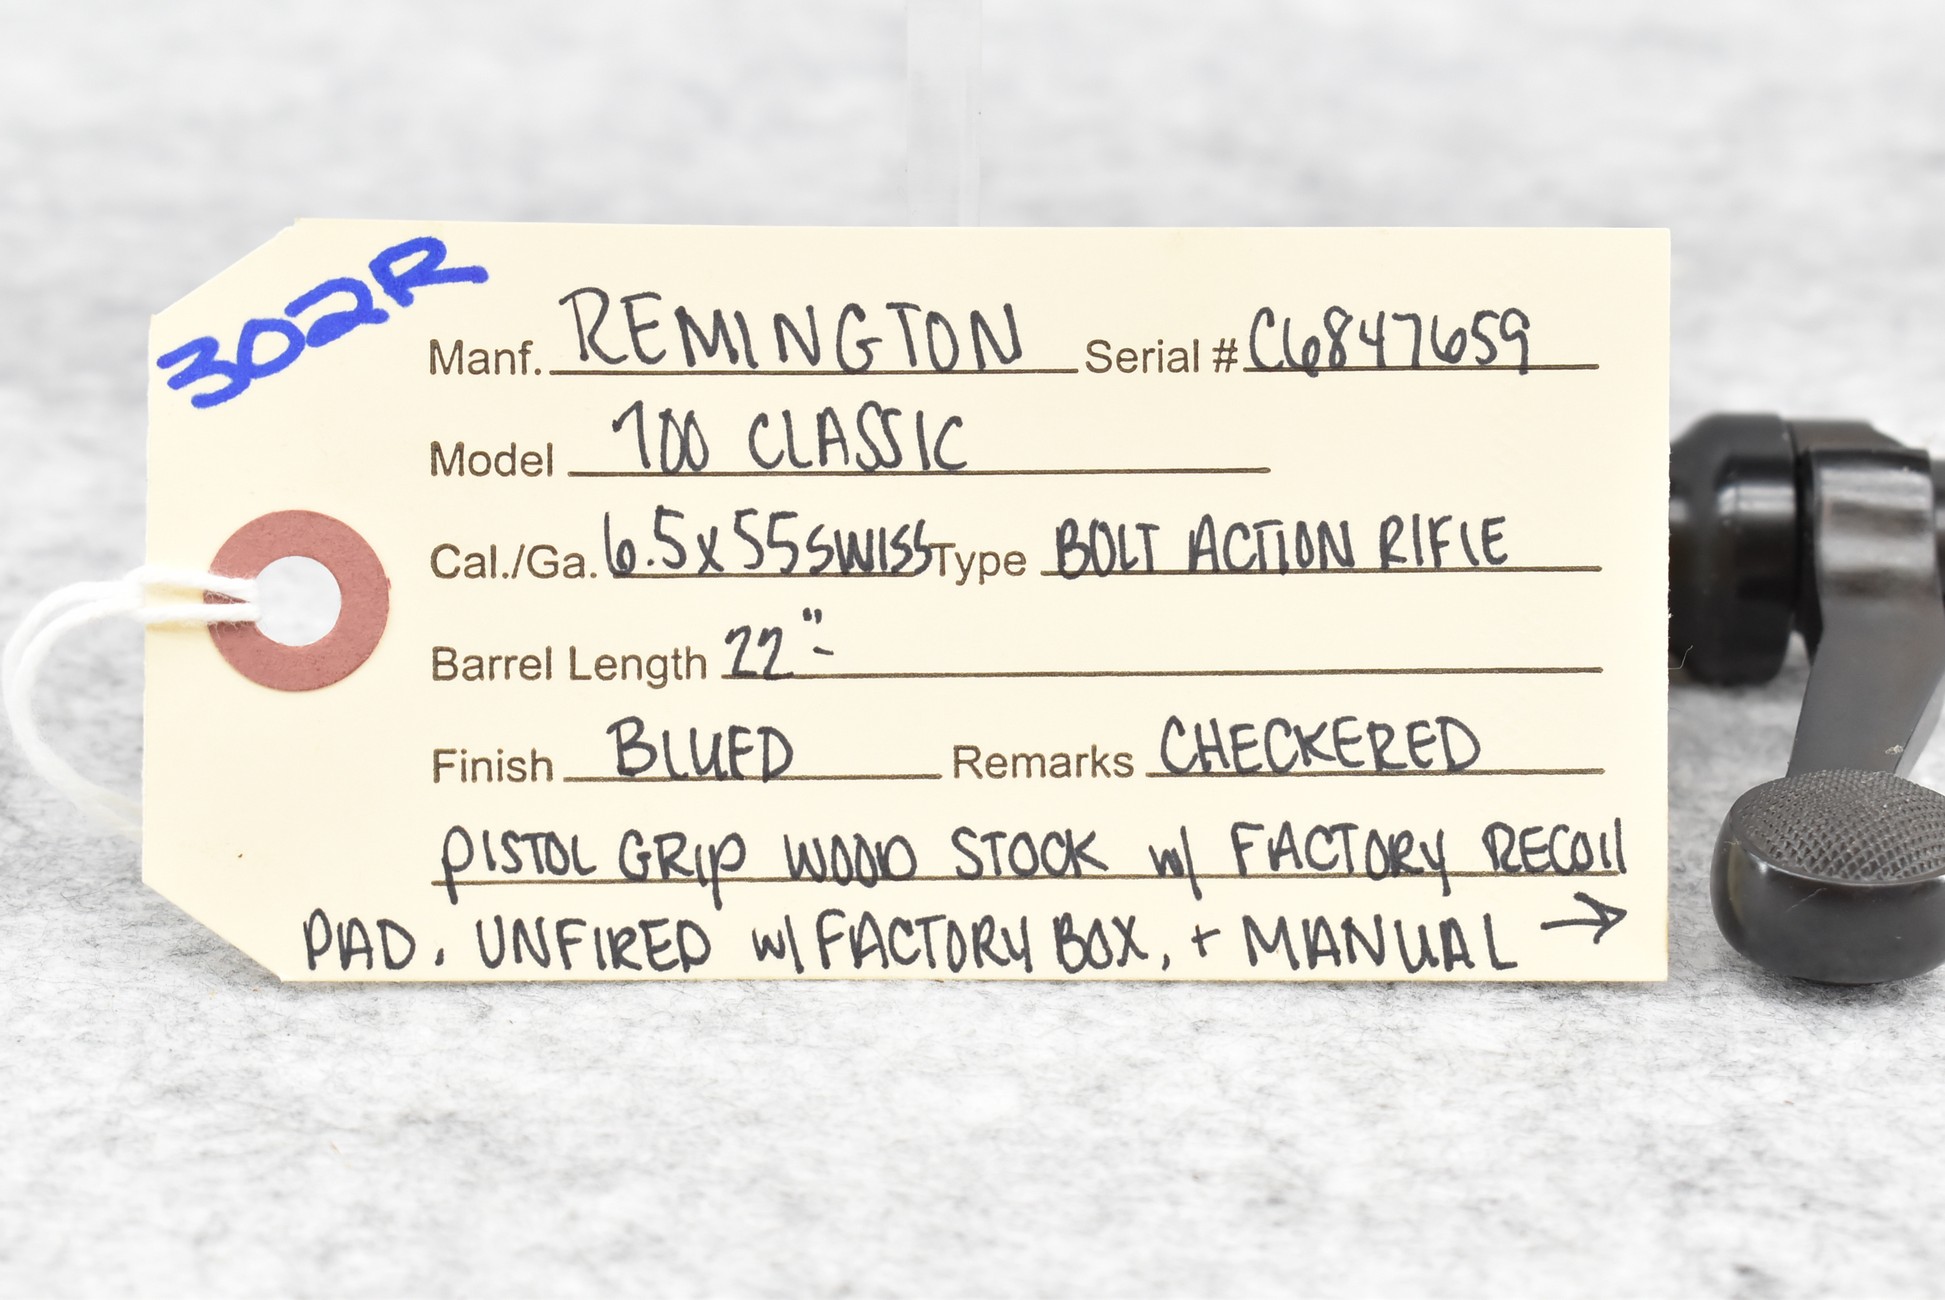 302R
Manf. REMINGTON Serial # C6847659
Model 700 CLASSIC
Cal./Ga. 6.5x55 SWISS Type BOLT ACTION RIFLE
Barrel Length 22"-
Finish BLUED Remarks CHECKERED
PISTOL GRIP WOOD STOCK w/ FACTORY RECOIL
PAD. UNFIRED w/ FACTORY BOX, + MANUAL →